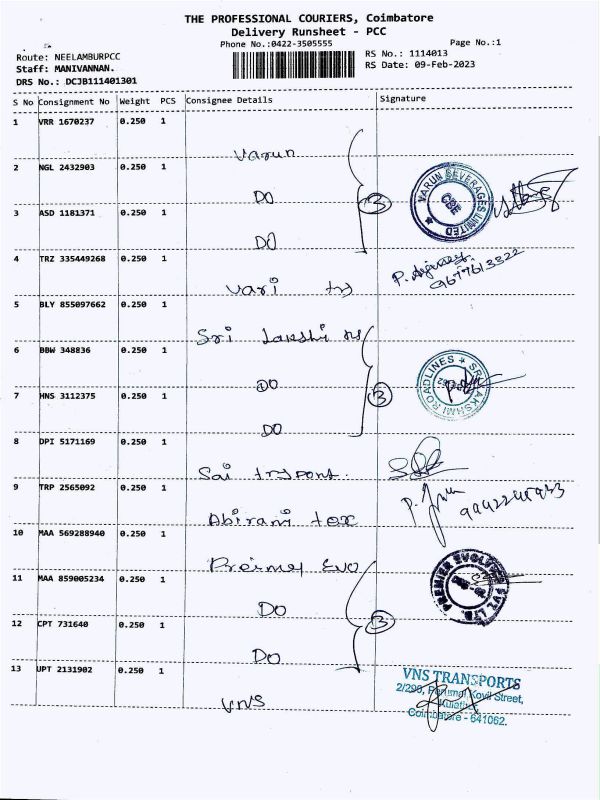 THE PROFESSIONAL COURIERS, Coimbatore
Delivery Runsheet - PCC
Phone No.:0422-3505555
Page No.:1
Route: NEELAMBURPCC
RS No.: 1114013
Staff: MANIVANNAN.
RS Date: 09-Feb-2023
DRS No.: DCJB111401301
S No Consignment No Weight PCS Consignee Details Signature
1 VRR 1670237 0.250 1
Varun
2 NGL 2432903 0.250 1
DO
3 ASD 1181371 0.250 1
DO
3
VARUN BEVERAGES LIMITED
CBE
4 TRZ 335449268 0.250 1
Vari
9677613322
5 BLY 855097662 0.250 1
Sri
6 BBW 348836 0.250 1
DO
7 HNS 3112375 0.250 1
DO
3
SRI LAKSHMI ROADLINES
8 DPI 5171169 0.250 1
Sai
9 TRP 2565092 0.250 1
Abirani tex
10 MAA 569288940 0.250 1
Evo
11 MAA 859005234 0.250 1
DO
12 CPT 731640 0.250 1
DO
3
PREMIER EVOLVICS PVT LTD
13 UPT 2131902 0.250 1
VNS
VNS TRANSPORTS
Kovil Street,
Coimbatore - 641062.